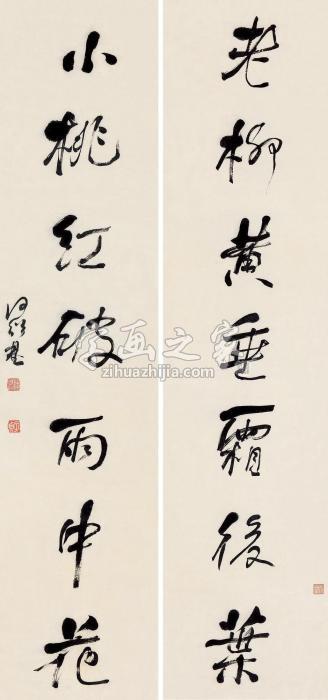 老柳黃垂霜後葉
小桃紅破雨中花
何紹基
字画之家
zihuazhijia.com